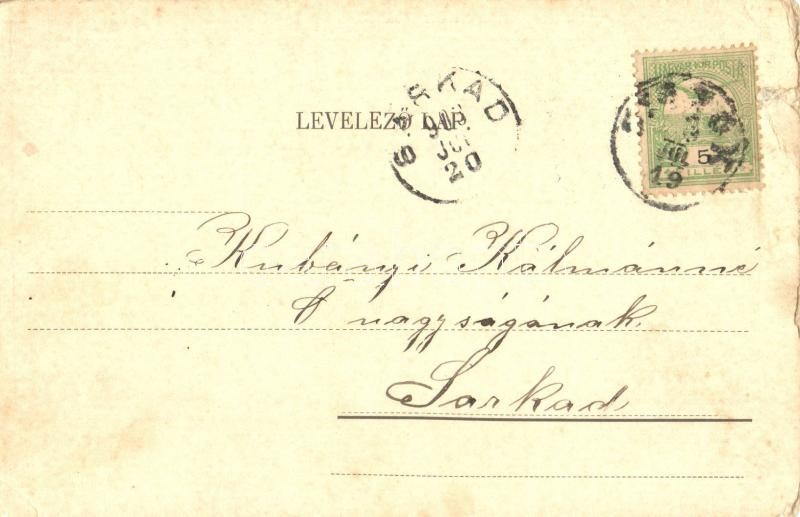 MAGYAR KIR. POSTA
LEVELEZŐ LAP.
SARKAD
903
JUL
20
JUL
19
5
FILLÉR
Kubányi Kálmánné
Ő nagyságának
Sarkad